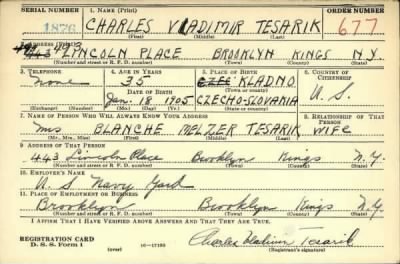 SERIAL NUMBER 1. NAME (Print) ORDER NUMBER
1876 CHARLES VLADIMIR TESARIK 677
(First) (Middle) (Last)
2. ADDRESS (Print)
443 LINCOLN PLACE BROOKLYN KINGS N.Y.
(Number and street or R. F. D. number) (Town) (County) (State)
3. TELEPHONE 4. AGE IN YEARS 5. PLACE OF BIRTH 6. COUNTRY OF CITIZENSHIP
None 35 KLADNO
(Town or county)
DATE OF BIRTH
Jan. 18 1905 CZECHO-SLOVAKIA U. S.
(Exchange) (Number) (Mo.) (Day) (Yr.) (State or country)
7. NAME OF PERSON WHO WILL ALWAYS KNOW YOUR ADDRESS 8. RELATIONSHIP OF THAT PERSON
Mrs BLANCHE MELZER TESARIK WIFE
(Mr., Mrs., Miss) (First) (Middle) (Last)
9. ADDRESS OF THAT PERSON
443 Lincoln Place Brooklyn Kings N.Y.
(Number and street or R. F. D. number) (Town) (County) (State)
10. EMPLOYER'S NAME
U. S. Navy Yard
11. PLACE OF EMPLOYMENT OR BUSINESS
Brooklyn Brooklyn Kings N.Y.
(Number and street or R. F. D. number) (Town) (County) (State)
I AFFIRM THAT I HAVE VERIFIED ABOVE ANSWERS AND THAT THEY ARE TRUE.
REGISTRATION CARD
D. S. S. Form 1 (over) 16—17105 Charles Vladimir Tesarik
(Registrant's signature)